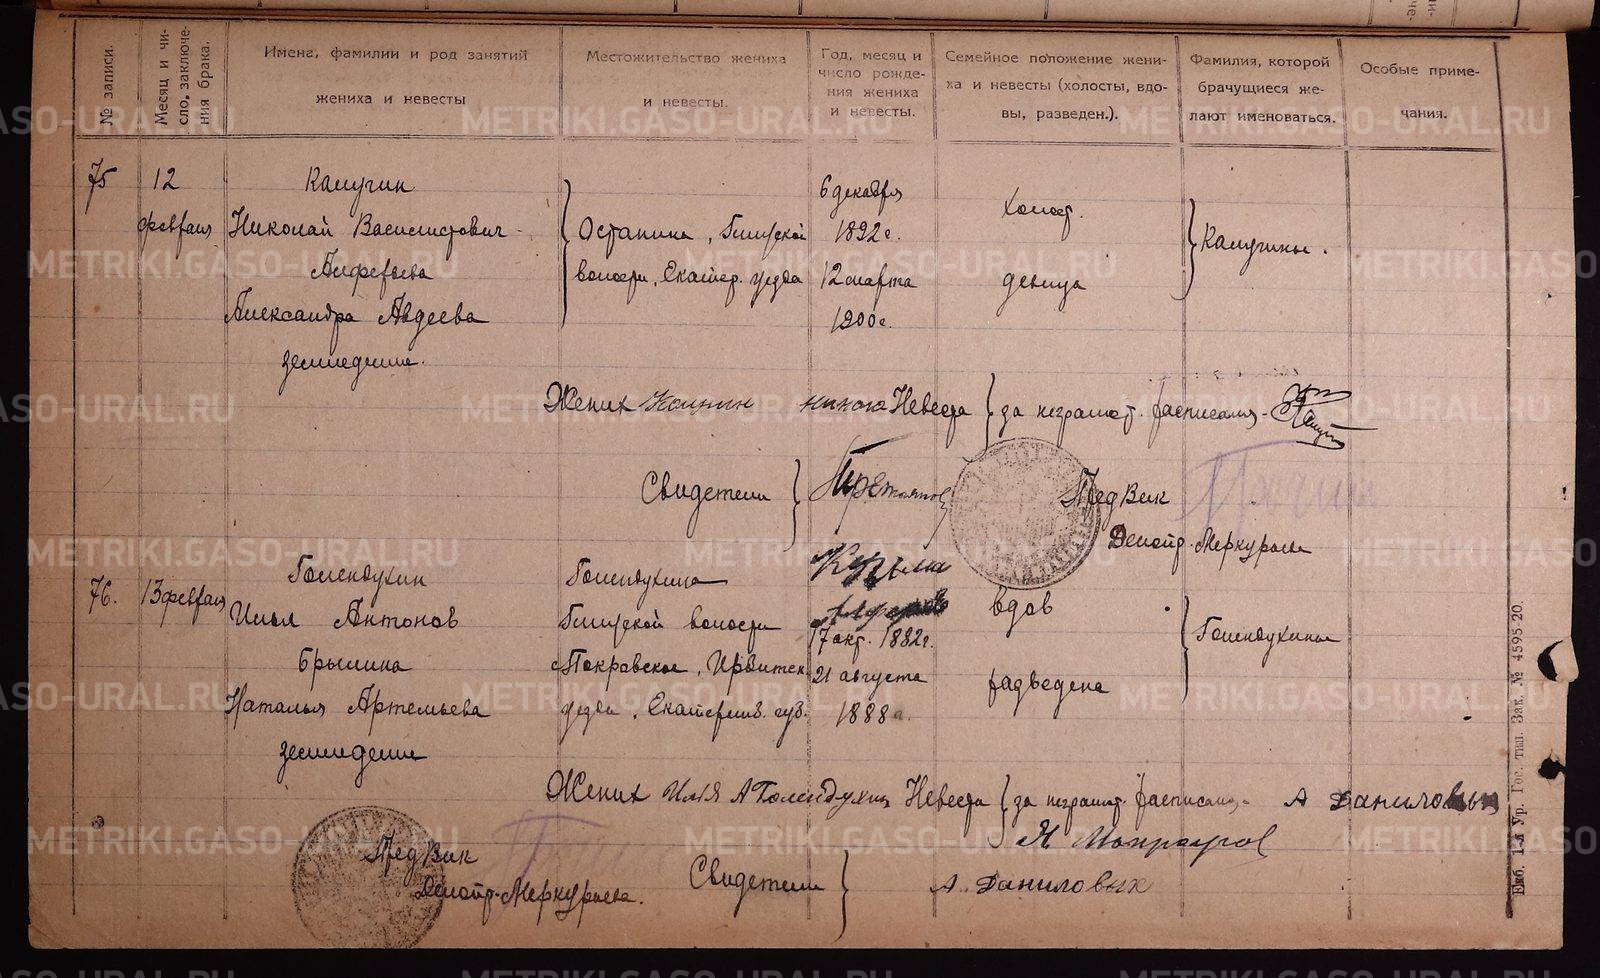 № записи.
Месяц и чи-
сло, заключе-
ния брака.
Имена, фамилии и род занятий
жениха и невесты
Местожительство жениха
и невесты.
Год, месяц и
число рожде-
ния жениха
и невесты.
Семейное положение жени-
ха и невесты (холосты, вдо-
вы, разведен.).
Фамилия, которой
брачущиеся же-
лают именоваться.
Особые приме-
чания.
75
12
февраля
Калугин
Николай Василистович
Алферьева
Александра Авдеева
земледелие.
Останина, Глинской
волости, Екатер. уезда
6 декабря
1892 г.
12 марта
1900 г.
холост.
девица
Калугины.
Жених Калугин Никола Невеста за неграмот. расписался
Свидетели
Пред Вик
Делопр. Меркурьева
76.
13 февраля
Голендухин
Илья Антонов
Брылина
Наталья Артемьева
земледелие
Голендухина
Глинской волости
Покровское, Ирбитск
уезда, Екатеринб. губ.
Кузьма
17 окт. 1882 г.
21 августа
1888 г.
вдов
разведена
Голендухины
Жених Илья А Голендухин Невеста за неграмот. расписался А Даниловых
Пред Вик
Делопр. Меркурьева.
Свидетели
А. Даниловых
Екб. 1-я Ур. Гос. тип. Зак. № 4595-20.
METRIKI.GASO-URAL.RU